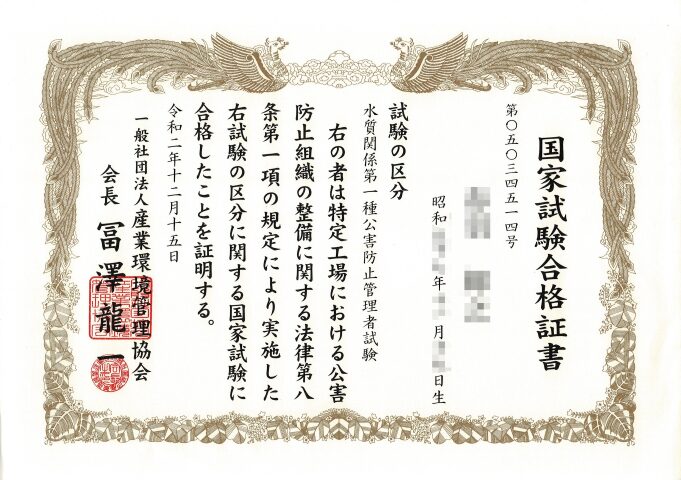 国家試験合格証書
第〇五〇三四五一四号
昭和 年 月 日生
試験の区分
水質関係第一種公害防止管理者試験
右の者は特定工場における公害
防止組織の整備に関する法律第八
条第一項の規定により実施した
右試験の区分に関する国家試験に
合格したことを証明する。
令和二年十二月十五日
一般社団法人産業環境管理協会
会長 冨澤龍一